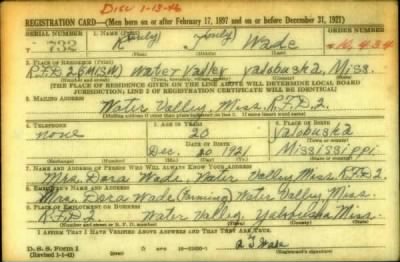 Disc 1-13-46
REGISTRATION CARD—(Men born on or after February 17, 1897 and on or before December 31, 1921)
SERIAL NUMBER 1. NAME (Print) ORDER NUMBER
R (only) T (only) Wade
(First) (Middle) (Last)
2. PLACE OF RESIDENCE (Print)
R.F.D 2 Water Valley Yalobusha, Miss.
[THE PLACE OF RESIDENCE GIVEN ON THE LINE ABOVE WILL DETERMINE LOCAL BOARD
JURISDICTION; LINE 2 OF REGISTRATION CERTIFICATE WILL BE IDENTICAL]
3. MAILING ADDRESS
Water Valley, Miss. R.F.D. 2.
[Mailing address if other than place indicated on line 2. If same insert word same]
4. TELEPHONE 5. AGE IN YEARS 6. PLACE OF BIRTH
none 20 Yalobusha
DATE OF BIRTH (Town or county)
Dec. 20, 1921 Mississippi
(Mo.) (Day) (Yr.) (State or country)
7. NAME AND ADDRESS OF PERSON WHO WILL ALWAYS KNOW YOUR ADDRESS
Mrs. Dora Wade, Water Valley, Miss R.F.D. 2.
8. EMPLOYER'S NAME AND ADDRESS
Mrs. Dora Wade (Farming) Water Valley, Miss.
9. PLACE OF EMPLOYMENT OR BUSINESS
R.F.D. 2 Water Valley, Yalobusha Miss.
(Number and street or R. F. D. number) (Town) (County) (State)
I AFFIRM THAT I HAVE VERIFIED ABOVE ANSWERS AND THAT THEY ARE TRUE.
D. S. S. Form 1
(Revised 1-1-42) R T Wade
(Registrant's signature)